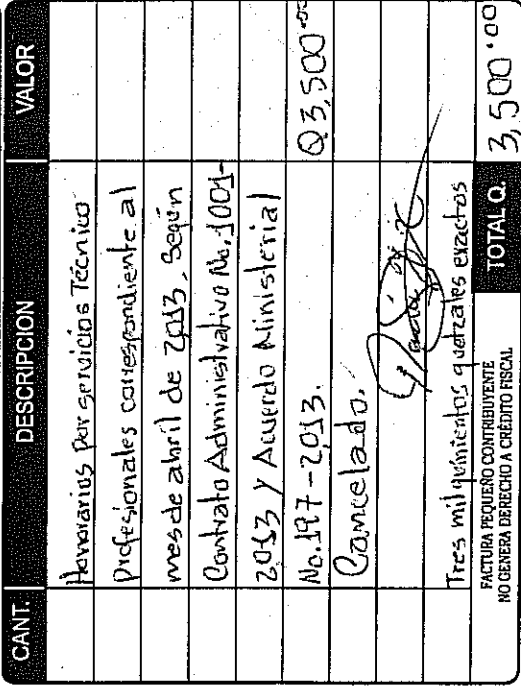 CANT. DESCRIPCION VALOR
Honorarios por servicios Técnico
Profesionales correspondiente al
mes de abril de 2013, Según
Contrato Administrativo No. 1001-
2013 y Acuerdo Ministerial
No. 197-2013. Q3,500.00
Cancelado.
Tres mil quinientos quetzales exactos
FACTURA PEQUEÑO CONTRIBUYENTE
NO GENERA DERECHO A CRÉDITO FISCAL
TOTAL Q. 3,500.00